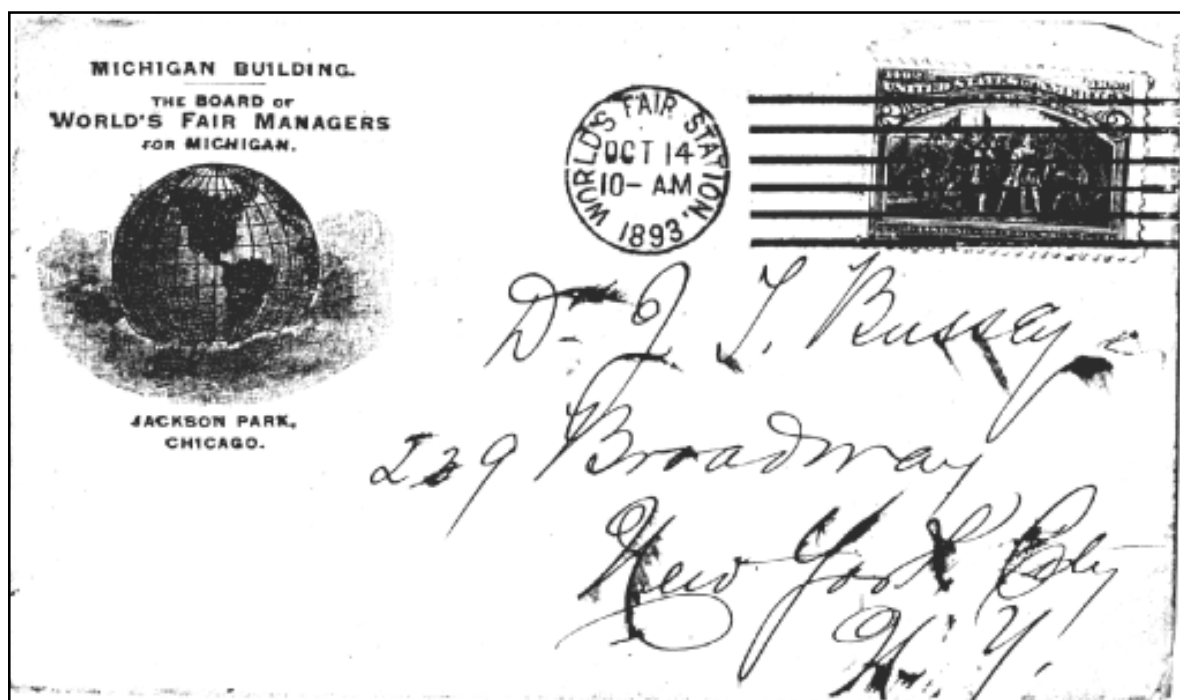 MICHIGAN BUILDING.
THE BOARD OF
WORLD'S FAIR MANAGERS
FOR MICHIGAN.
JACKSON PARK,
CHICAGO.
WORLD'S FAIR STATION.
OCT 14
10-AM
1893.
UNITED STATES OF AMERICA
2 2
Dr J. T. Bussey
Broadway
New York City
N. Y.